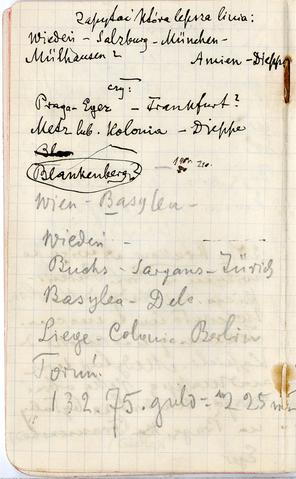 Zapytać która lepsza linia:
Wiedeń - Salzburg - München -
Mülhausen? Amien - Dieppe
czy:
Praga - Eger - Frankfurt?
Metz lub Kolonia - Dieppe
Bla
Blankenberg?
Wien - Basylea -
Wiedeń -
Buchs - Sargans - Zürich
Basylea - Dele
Liege - Colonia - Berlin
Toruń.
132.75. guld = 225